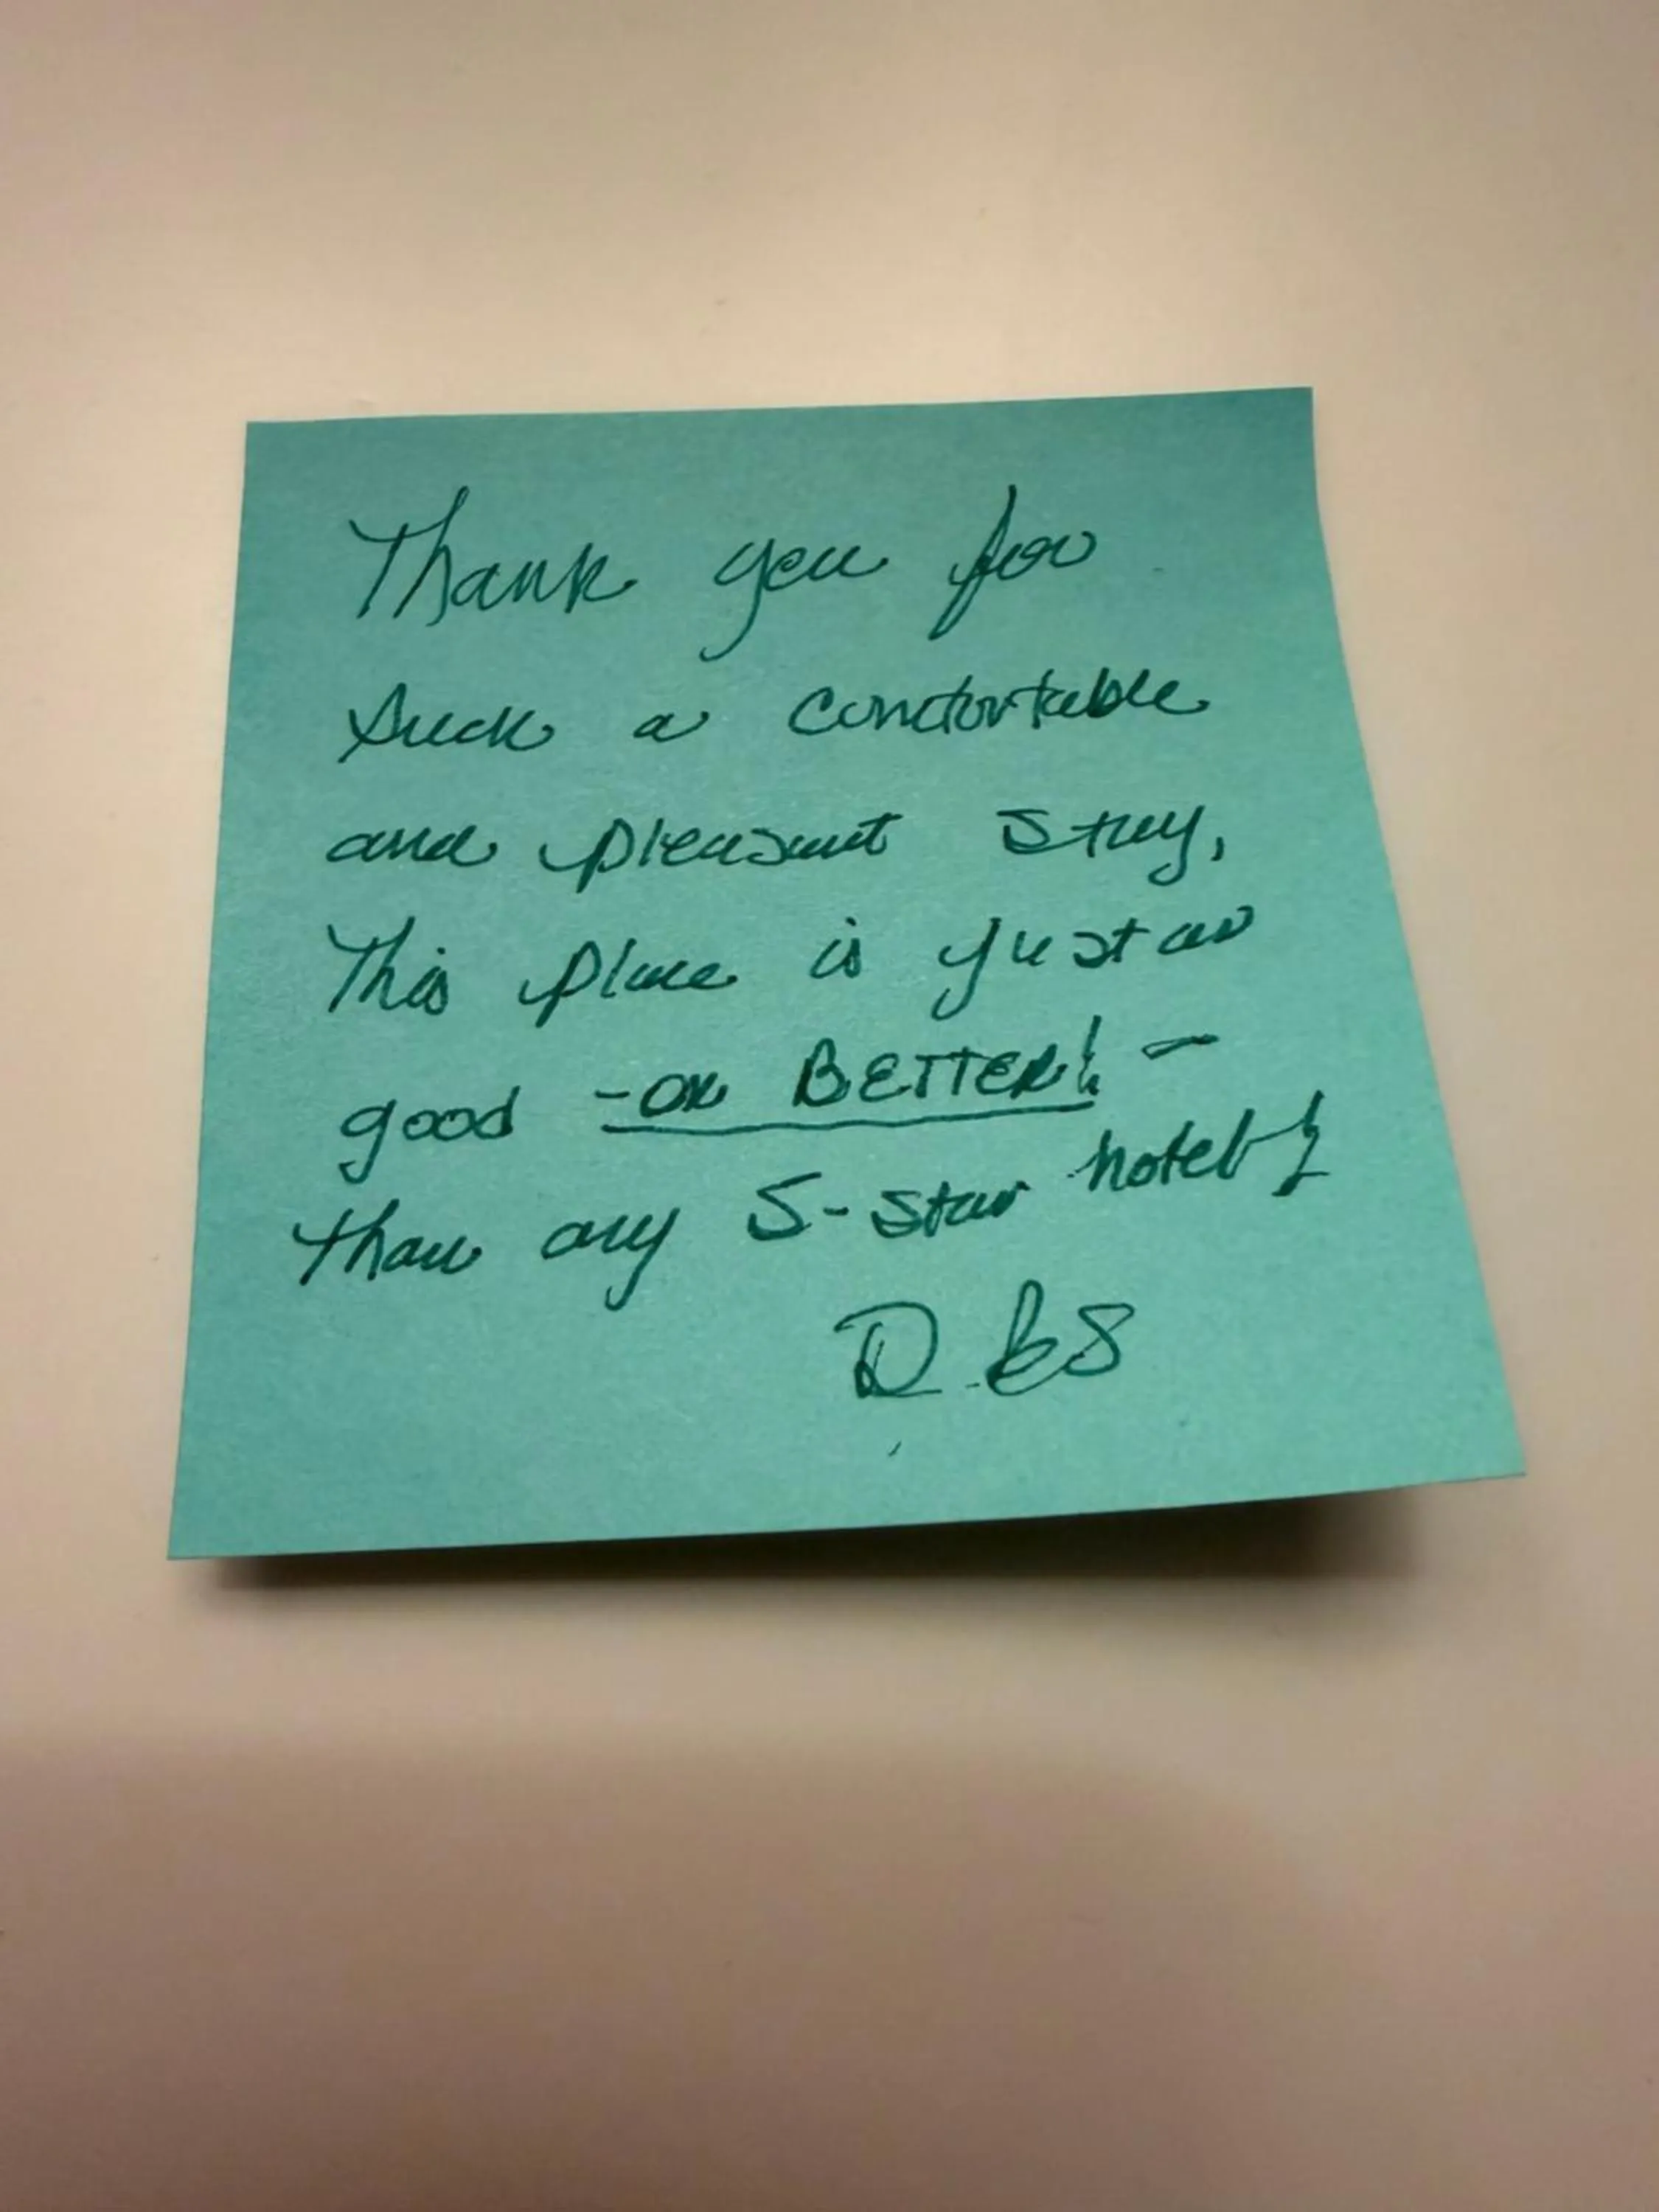 Thank you for
such a comfortable
and pleasant stay,
This place is just as
good - OR BETTER! -
than any 5-star hotel!